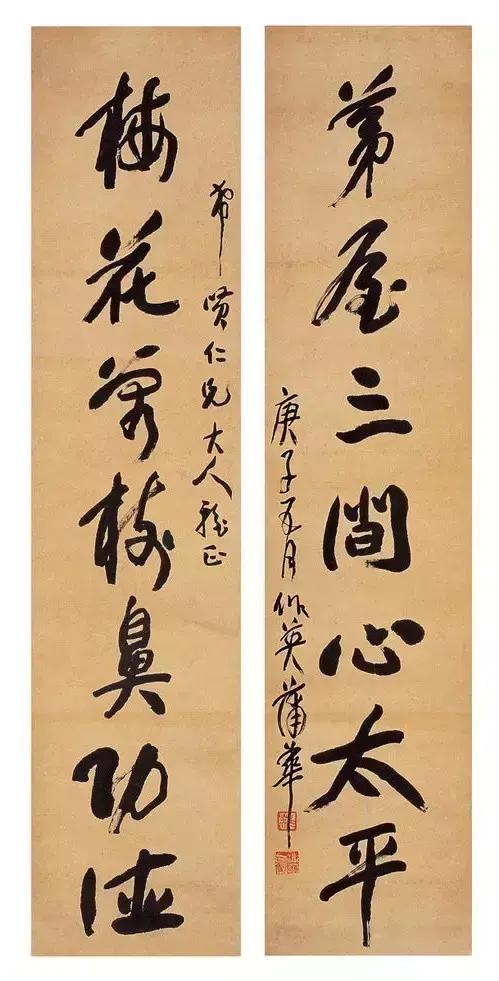 茅屋三間心太平
庚子五月作英蒲華
希賢仁兄大人雅正
梅花萬樹鼻功德